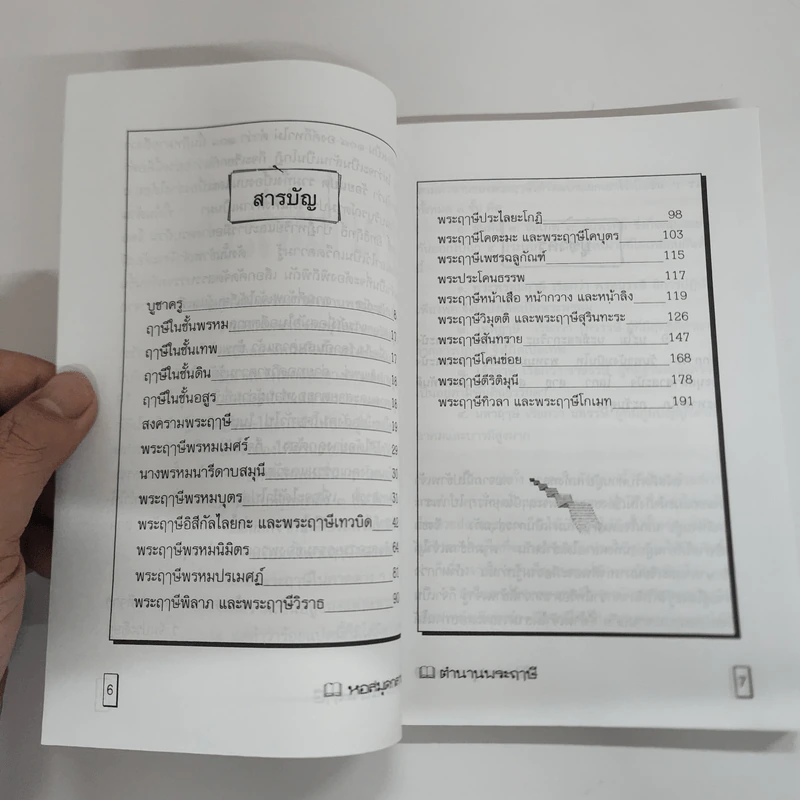 สารบัญ
บูชาครู 8
ฤๅษีในชั้นพรหม
ฤๅษีในชั้นเทพ
ฤๅษีในชั้นดิน
ฤๅษีในชั้นอสูร
สงครามพระฤๅษี
พระฤๅษีพรหมเมศร์
นางพรหมนารีดาบสมุนี
พระฤๅษีพรหมบุตร
พระฤๅษีอิสีกัลไลยกะ และพระฤๅษีเทวบิด
พระฤๅษีพรหมนิมิตร 64
พระฤๅษีพรหมปรเมศฎ์
พระฤๅษีพิลาภ และพระฤๅษีวิราธ 90
6
หอสมุดกลาง
พระฤๅษีประไลยะโกฏิ 98
พระฤๅษีโคตะมะ และพระฤๅษีโคบุตร 103
พระฤๅษีเพชรฉลูกัณฑ์ 115
พระประโคนธรรพ 117
พระฤๅษีหน้าเสือ หน้ากวาง และหน้าลิง 119
พระฤๅษีวิมุตติ และพระฤๅษีสุรินทะระ 126
พระฤๅษีสันทราย 147
พระฤๅษีโคนช่อย 168
พระฤๅษีตีริติมุนี 178
พระฤๅษีทิวลา และพระฤๅษีโกเมท 191
ตำนานพระฤๅษี
7